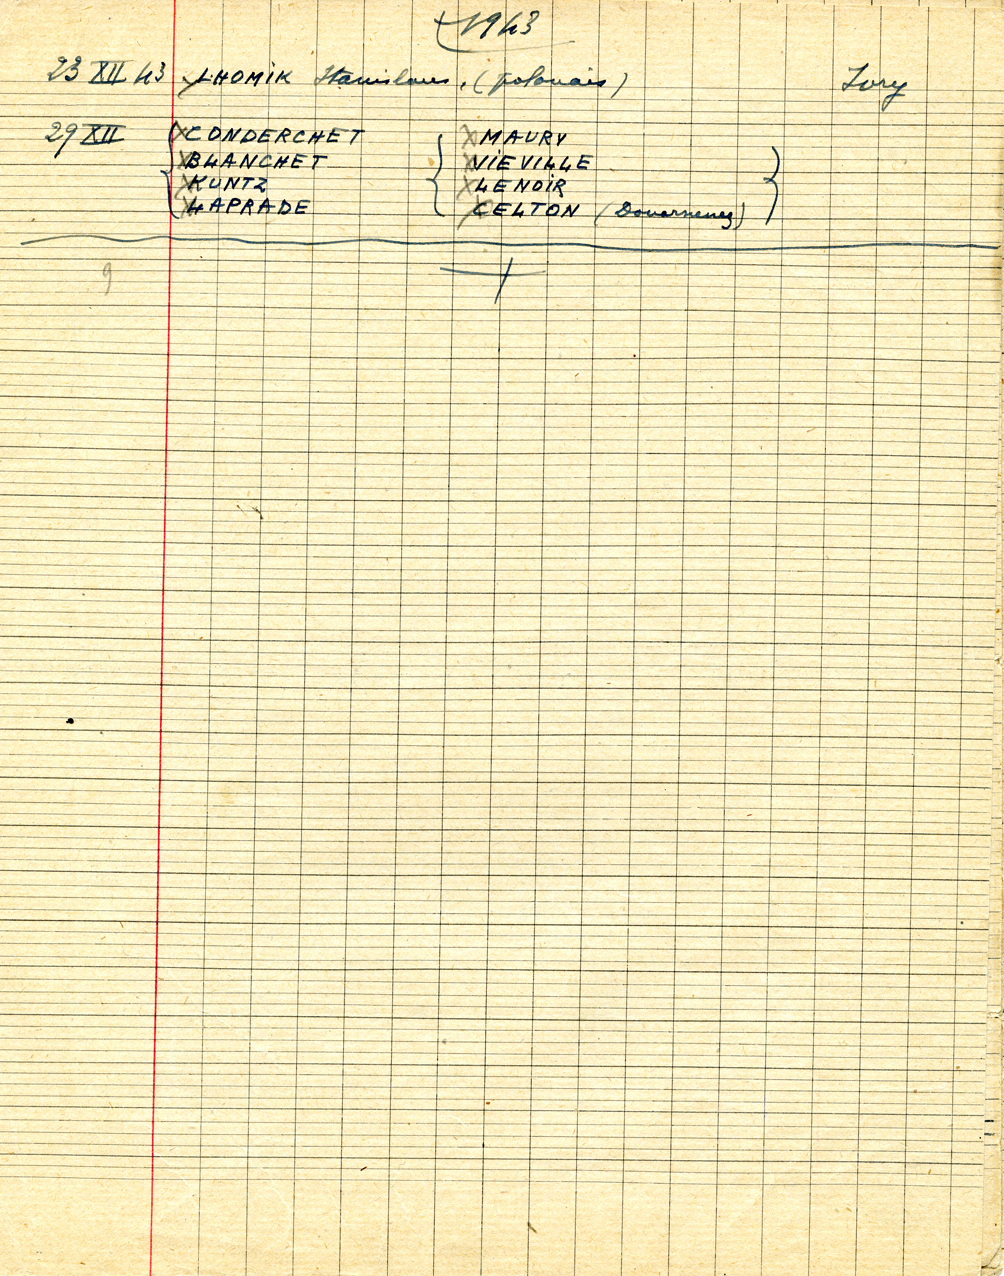 1943
23 XII 43 LHOMIK Stanislaus, (polonais) Ivry
29 XII CONDERCHET MAURY
BLANCHET VIEVILLE
KUNTZ LENOIR
LAPRADE CELTON (Douarnenez)
9